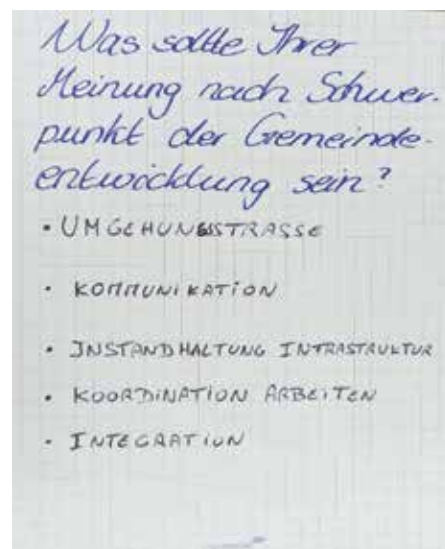 Was sollte Ihrer
Meinung nach Schwer-
punkt der Gemeinde-
entwicklung sein?
• UMGEHUNGSSTRASSE
• KOMMUNIKATION
• INSTANDHALTUNG INFRASTRUKTUR
• KOORDINATION ARBEITEN
• INTEGRATION